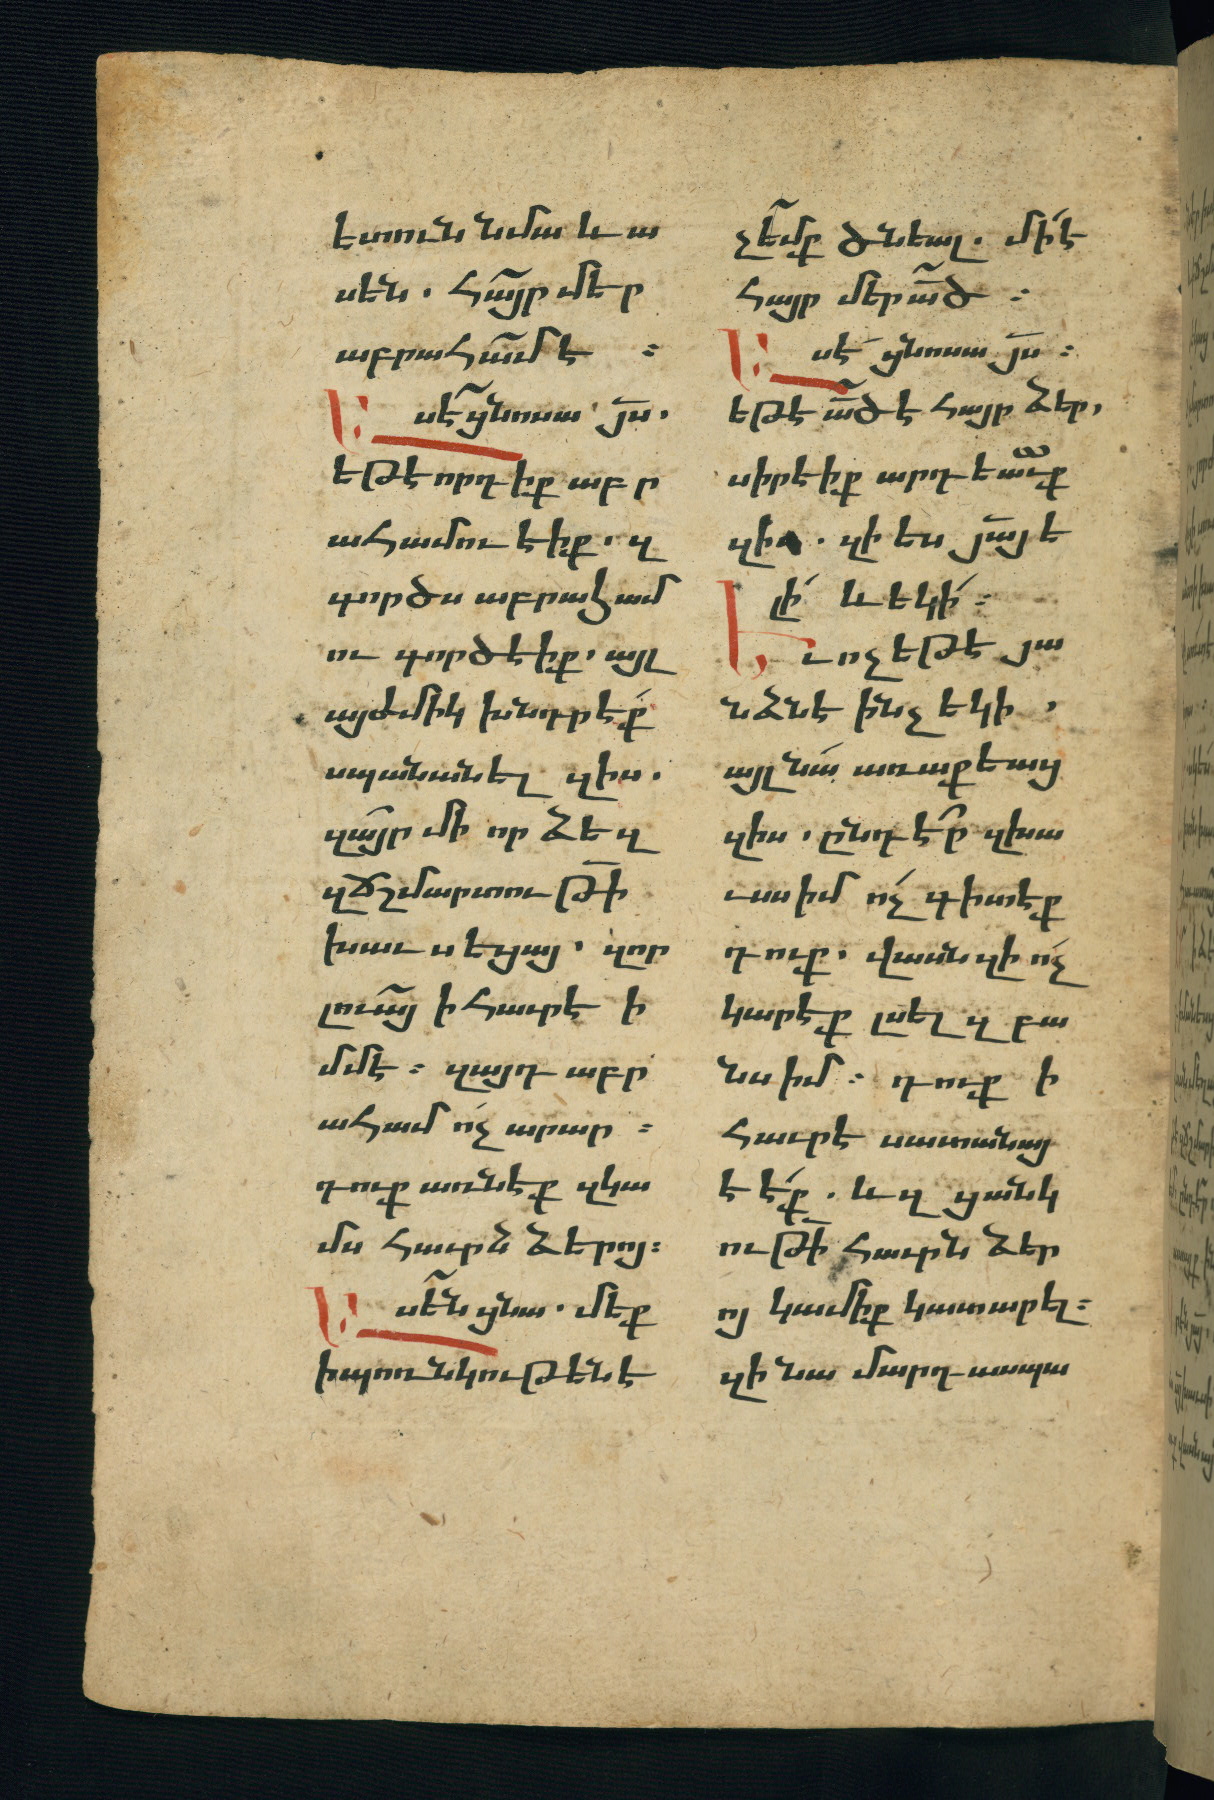 ետուն նմա և ա
սեն. հա՟յր մեր
աբրահա՟մ է ։
Ա սէ՟ ցնոսա յս՟.
եթէ որդիք աբր
ահամու էիք. զ
գործս աբրահամ
ու գործէիք. այլ
այժմիկ խնդրէք
սպանանել զիս.
զա՟յր մի որ ձեզ
զճշմարտութի՟
խաւսեցայ. զոր
լուա՟յ ի հաւրէ ի
մմէ ։ զայդ աբր
ահամ ոչ արար ։
դուք առնէք զկա
մս հաւրն ձերոյ ։
Ա սե՟ն ցնա. մեք
ի պոռնկութենէ
չե՟մք ծնեալ. մի է
հայր մեր ա՟ծ ։
Ա սէ ցնոսա յս՟ ։
եթէ ա՟ծ է հայր ձեր,
սիրէիք արդեաւք
զիս. զի ես յա՟յ ե
լի և եկի ։
Եւ ոչ եթէ յա
նձնէ ինչ եկի,
այլ նա առաքեաց
զիս. ընդէ՟ր զխա
ւսս իմ ոչ գիտէք
դուք. վասն զի ոչ
կարէք լսել զբա
նս իմ ։ դուք ի
հաւրէ սատանայ
է էք. և զցանկ
ութի՟ հաւրն ձեր
ոյ կամիք կատարել ։
զի նա մարդասպա